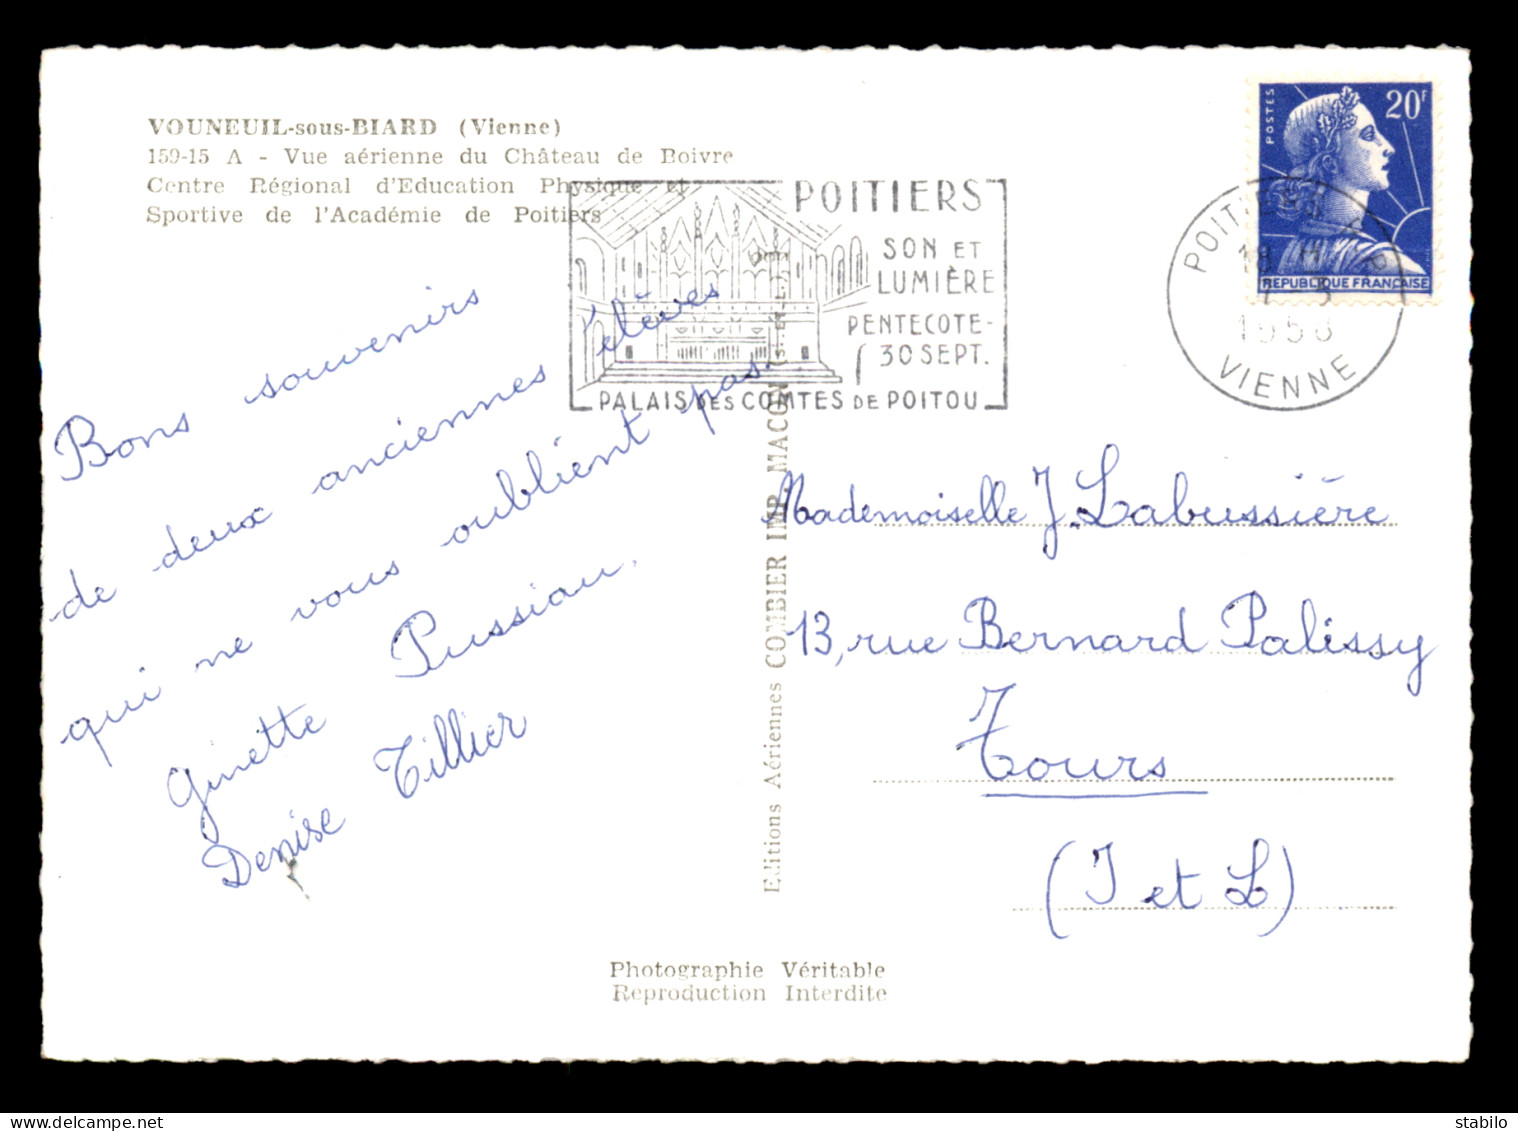 VOUNEUIL-sous-BIARD (Vienne)
159-15 A - Vue aérienne du Château de Boivre
Centre Régional d'Education Physique et
Sportive de l'Académie de Poitiers
POITIERS
SON ET
LUMIÈRE
PENTECOTE-
30 SEPT.
PALAIS DES COMTES DE POITOU
POSTES
20F
REPUBLIQUE FRANÇAISE
POITIERS
VIENNE
Bons souvenirs
de deux anciennes élèves
qui ne vous oublient pas.
Ginette Pussiau.
Denise Tillier
Editions Aériennes COMBIER IMP. MACON (S.-ET-L.)
Mademoiselle J. Labussière
13, rue Bernard Palissy
Tours
(I et L)
Photographie Véritable
Reproduction Interdite
stabilo